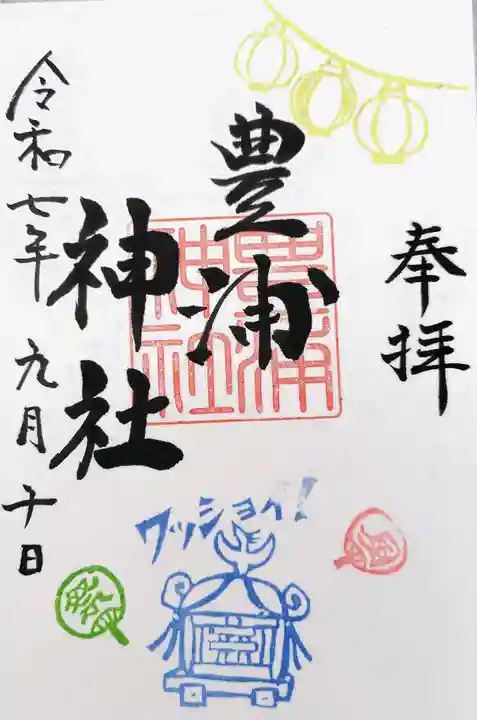 奉拝
豊浦
神社
豊浦
神社
令和七年 九月十日
ワッショイ!
祭